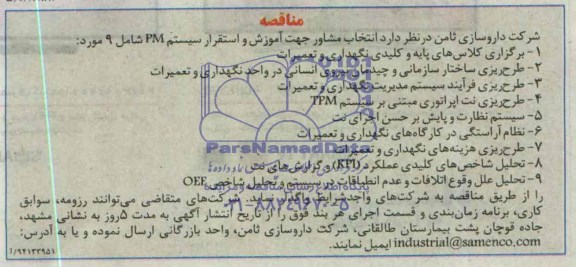 مناقصه
شرکت داروسازی ثامن در نظر دارد انتخاب مشاور جهت آموزش و استقرار سیستم PM شامل ۹ مورد:
۱- برگزاری کلاس‌های پایه و کلیدی نگهداری و تعمیرات
۲- طرح‌ریزی ساختار سازمانی و چیدمان نیروی انسانی در واحد نگهداری و تعمیرات
۳- طرح‌ریزی فرآیند سیستم مدیریت نگهداری و تعمیرات
۴- طرح‌ریزی نت اپراتوری مبتنی بر سیستم TPM
۵- سیستم نظارت و پایش بر حسن اجرای نت
۶- نظام آراستگی در کارگاه‌های نگهداری و تعمیرات
۷- طرح‌ریزی هزینه‌های نگهداری و تعمیرات
۸- تحلیل شاخص‌های کلیدی عملکرد (KPI) و گزارش‌های نت
۹- تحلیل علل وقوع اتلافات و عدم انطباقات در سیستم و تحلیل شاخص OEE
را از طریق مناقصه به شرکت‌های واجد شرایط واگذار نماید. شرکت‌های متقاضی می‌توانند رزومه، سوابق
کاری، برنامه زمان‌بندی و قسمت اجرای هر بند فوق را از تاریخ انتشار آگهی به مدت ۵ روز به نشانی مشهد،
جاده قوچان پشت بیمارستان طالقانی، شرکت داروسازی ثامن، واحد بازرگانی ارسال نموده و یا به آدرس:
industrial@samenco.com ایمیل نمایند.
۱/۹۴۱۳۳۹۵۱
ParsNamadData
۰۲۱-۸۸۳۴۹۶۷۰-۵